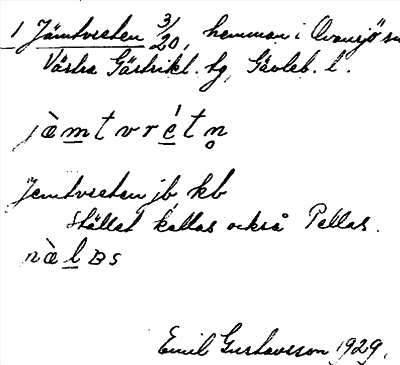 1 Jämtvreten 3/20, hemman i Ovansjö sn
Västra Gästrikl. tg, Gävleb. l.
jàmtvrétn̥
Jemtvreten jb, kb
Stället kallas också Pellas.
Emil Gustavsson 1929.